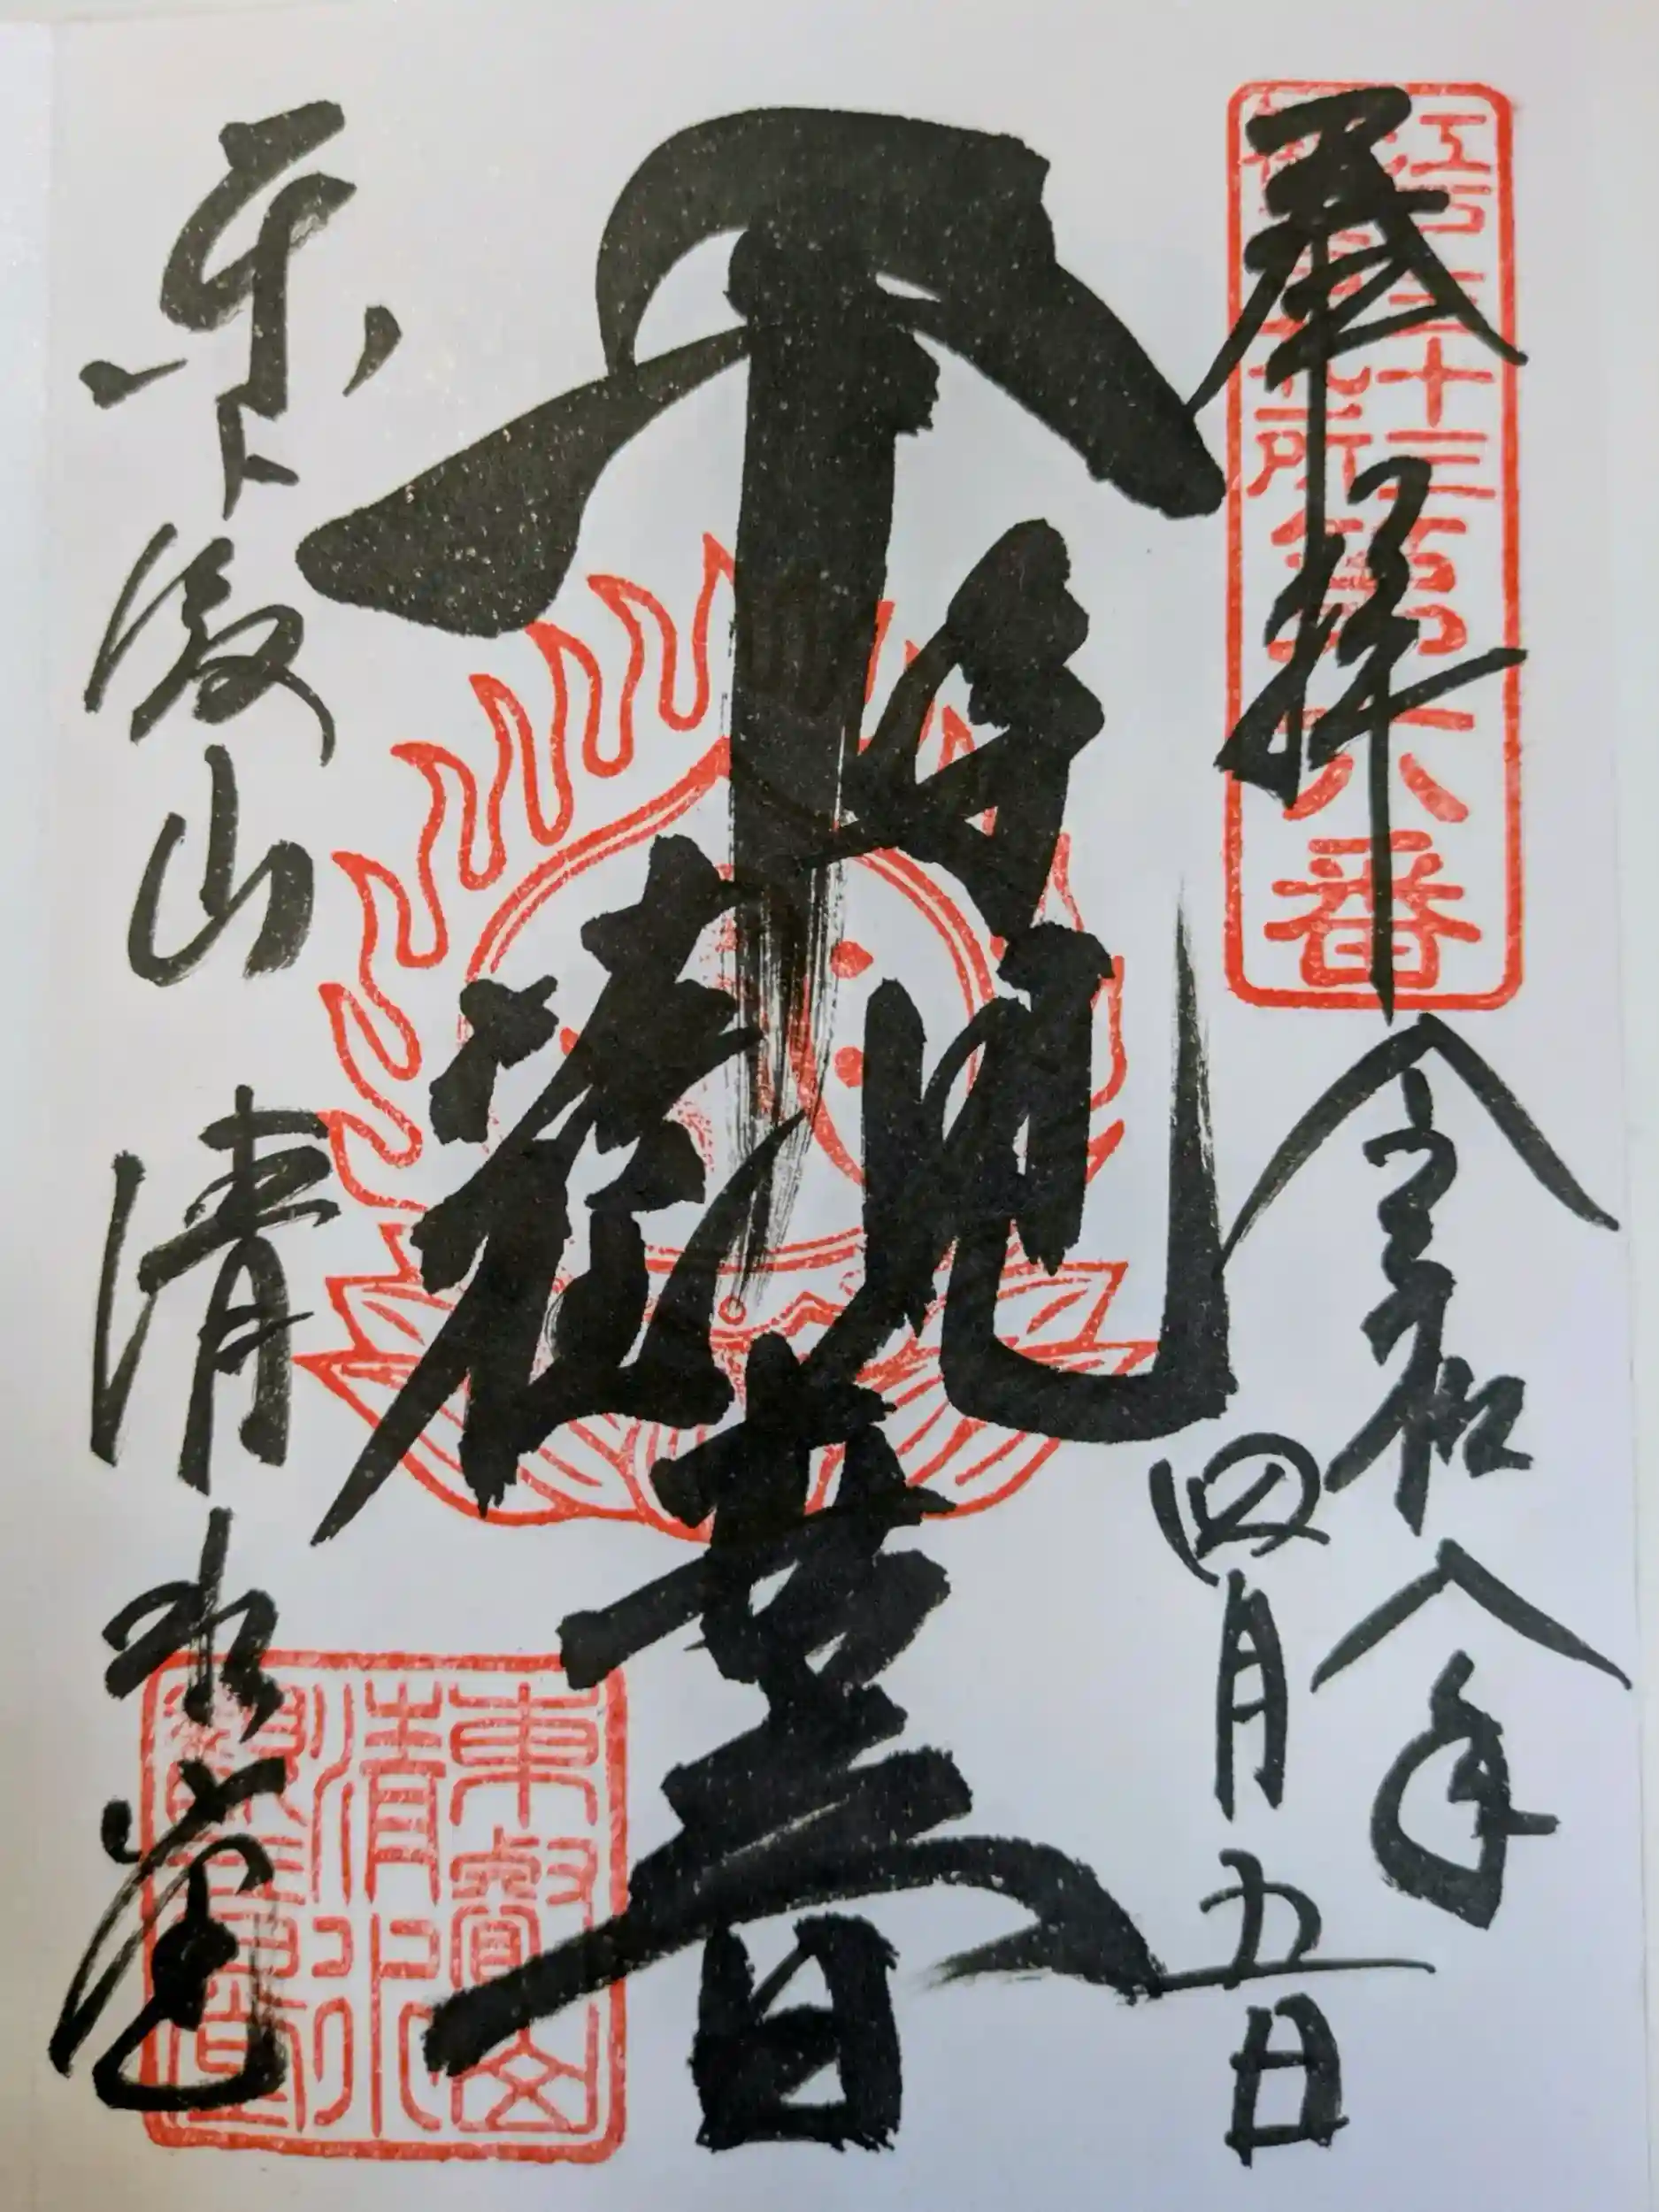 奉拝
江戸三十三
札所
第六番
令和八年
四月五日
千手觀音
東叡山 清水堂
東叡山
清水